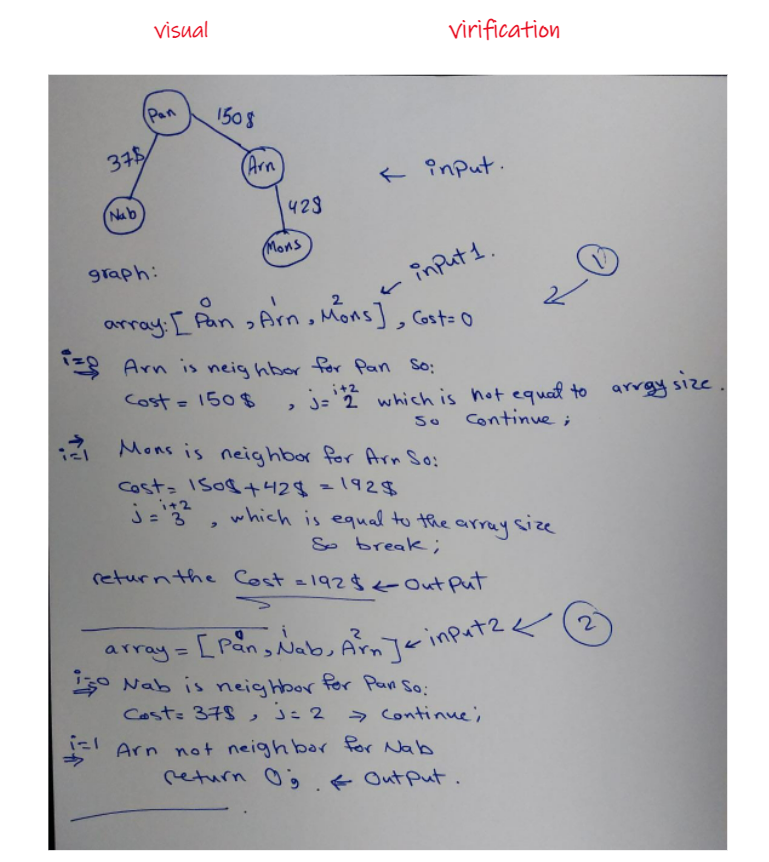 visual virification
Pan
150$
37$
Arn
← input.
Nab
42$
Mons
graph:
input1.
1
0 1 2
array: [ Pan , Arn , Mons ] , Cost=0
i=0 Arn is neighbor for Pan So:
Cost = 150$ , j= i+2 2 which is not equal to array size.
So Continue ;
i=1 Mons is neighbor for Arn So:
Cost= 150$+42$ = 192$
j = i+2 3 , which is equal to the array size
So break ;
return the Cost =192$ ← OutPut
0 1 2
array = [ Pan , Nab , Arn ] ← input2 ← 2
i=0 Nab is neighbor for Pan So:
Cost= 37$ , j= 2 → Continue;
i=1 Arn not neighbor for Nab
return 0; ← OutPut .